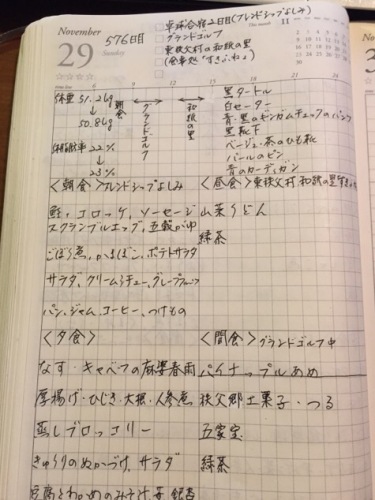 November
29
Sunday
576日目
卓球合宿2日目(フレンドシップよしみ)
グランドゴルフ
東秩父村の和紙の里
11
6 9 12 15 18 21 24
体重 51.2kg
↓
50.8kg
体脂肪率 22%
↓
23%
朝食
グランドゴルフ
和紙の里
黒タートル
白セーター
青・黒のギンガムチェックのパンツ
黒靴下
ベージュ・茶のひも靴
パールのピン
青のカーディガン
<朝食>フレンドシップよしみ
鮭、コロッケ、ソーセージ
スクランブルエッグ、五穀がゆ
ごぼう煮、かまぼこ、ポテトサラダ
サラダ、クリームシチュー、グレープフルーツ
パン、ジャム、コーヒー、つけもの
<昼食>東秩父村 和紙の里
山菜うどん
緑茶
<夕食>
なす・キャベツの麻婆春雨
厚揚げ・ひじき・大根・人参煮
蒸しブロッコリー
きゅうりのぬかづけ、サラダ
豆腐とわかめのみそ汁、
銀杏
<間食>グランドゴルフ中
パイナップルあめ
秩父郷土菓子・つる
五家宝
緑茶